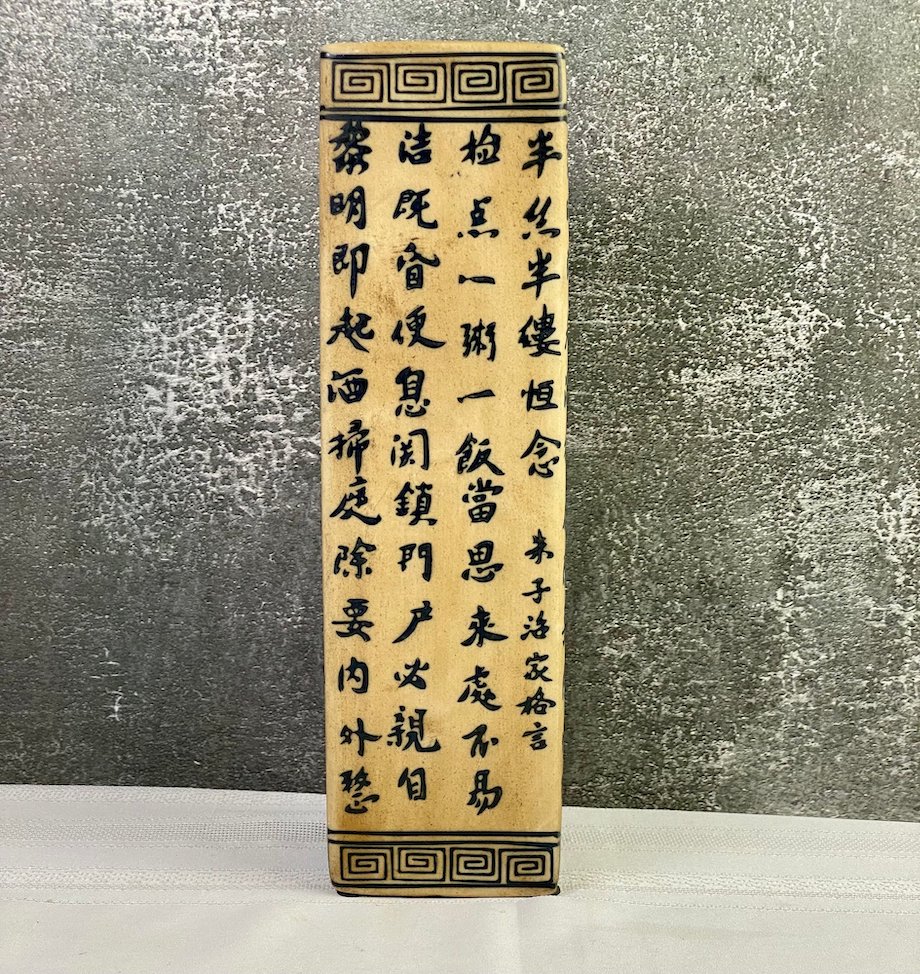 黎明即起洒掃庭除要内外整
洁既昏便息関鎖門户必親自
检点一粥一飯當思来處不易
半丝半縷恒念
朱子治家格言